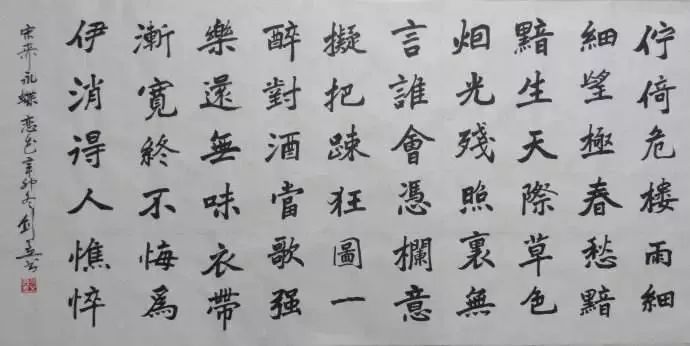 佇倚危樓雨細
細望極春愁黯
黯生天際草色
烟光殘照裏無
言誰會憑欄意
擬把疎狂圖一
醉對酒當歌强
樂還無味衣帶
漸寬終不悔爲
伊消得人憔悴
宋柳永蝶恋花辛卯冬劍书